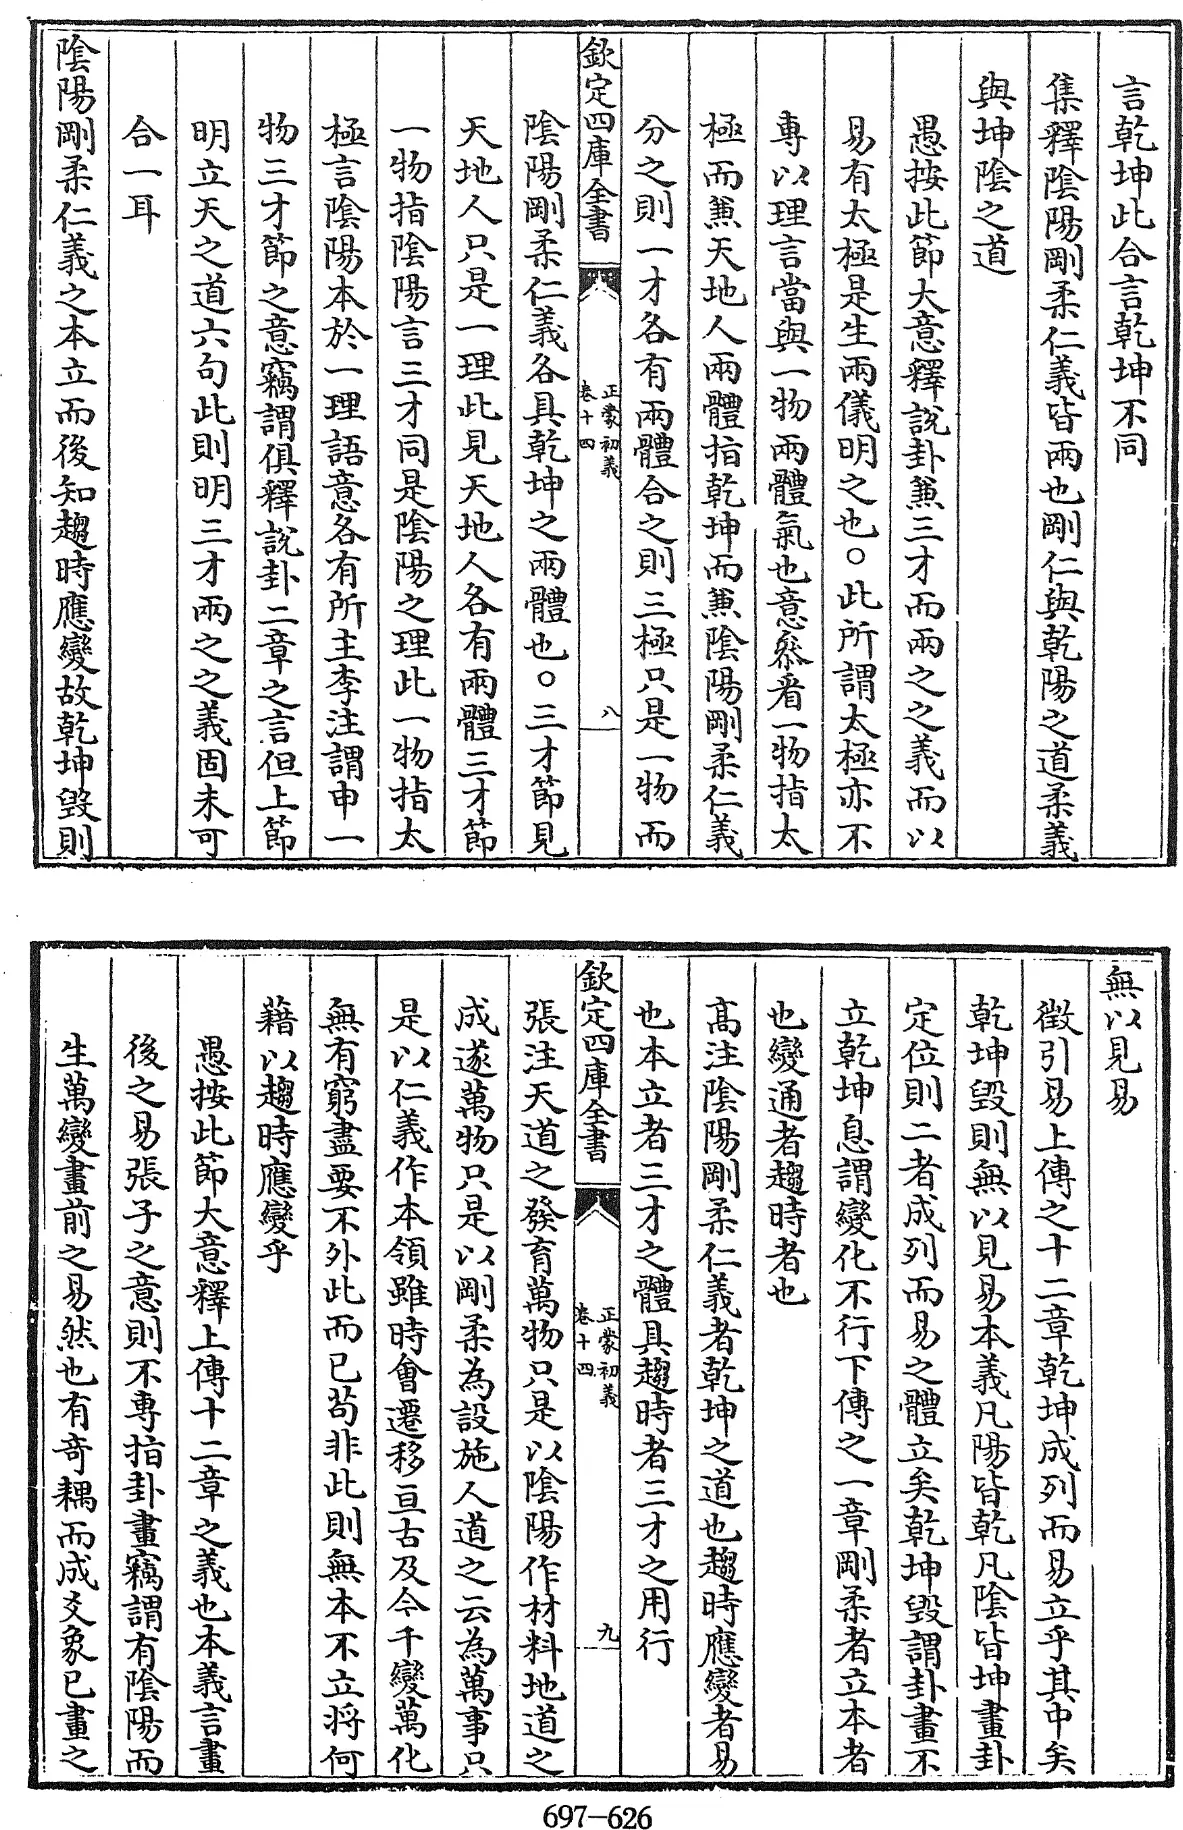 言乾坤此合言乾坤不同
集釋陰陽剛柔仁義皆兩也剛仁與乾陽之道柔義
與坤陰之道
愚按此節大意釋說卦兼三才而兩之之義而以
易有太極是生兩儀明之也○此所謂太極亦不
專以理言當與一物兩體氣也意叅看一物指太
極而兼天地人兩體指乾坤而兼陰陽剛柔仁義
分之則一才各有兩體合之則三極只是一物而
欽定四庫全書
正蒙初義
卷十四
八
陰陽剛柔仁義各具乾坤之兩體也○三才節見
天地人只是一理此見天地人各有兩體三才節
一物指陰陽言三才同是陰陽之理此一物指太
極言陰陽本於一理語意各有所主李注謂申一
物三才節之意竊謂俱釋說卦二章之言但上節
明立天之道六句此則明三才兩之之義固未可
合一耳
陰陽剛柔仁義之本立而後知趨時應變故乾坤毀則
無以見易
徵引易上傳之十二章乾坤成列而易立乎其中矣
乾坤毀則無以見易本義凡陽皆乾凡陰皆坤畫卦
定位則二者成列而易之體立矣乾坤毀謂卦畫不
立乾坤息謂變化不行下傳之一章剛柔者立本者
也變通者趨時者也
高注陰陽剛柔仁義者乾坤之道也趨時應變者易
也本立者三才之體具趨時者三才之用行
欽定四庫全書
正蒙初義
卷十四
九
張注天道之發育萬物只是以陰陽作材料地道之
成遂萬物只是以剛柔為設施人道之云為萬事只
是以仁義作本領雖時會遷移亘古及今千變萬化
無有窮盡要不外此而已苟非此則無本不立將何
藉以趨時應變乎
愚按此節大意釋上傳十二章之義也本義言畫
後之易張子之意則不專指卦畫竊謂有陰陽而
生萬變畫前之易然也有奇耦而成爻象已畫之
697-626